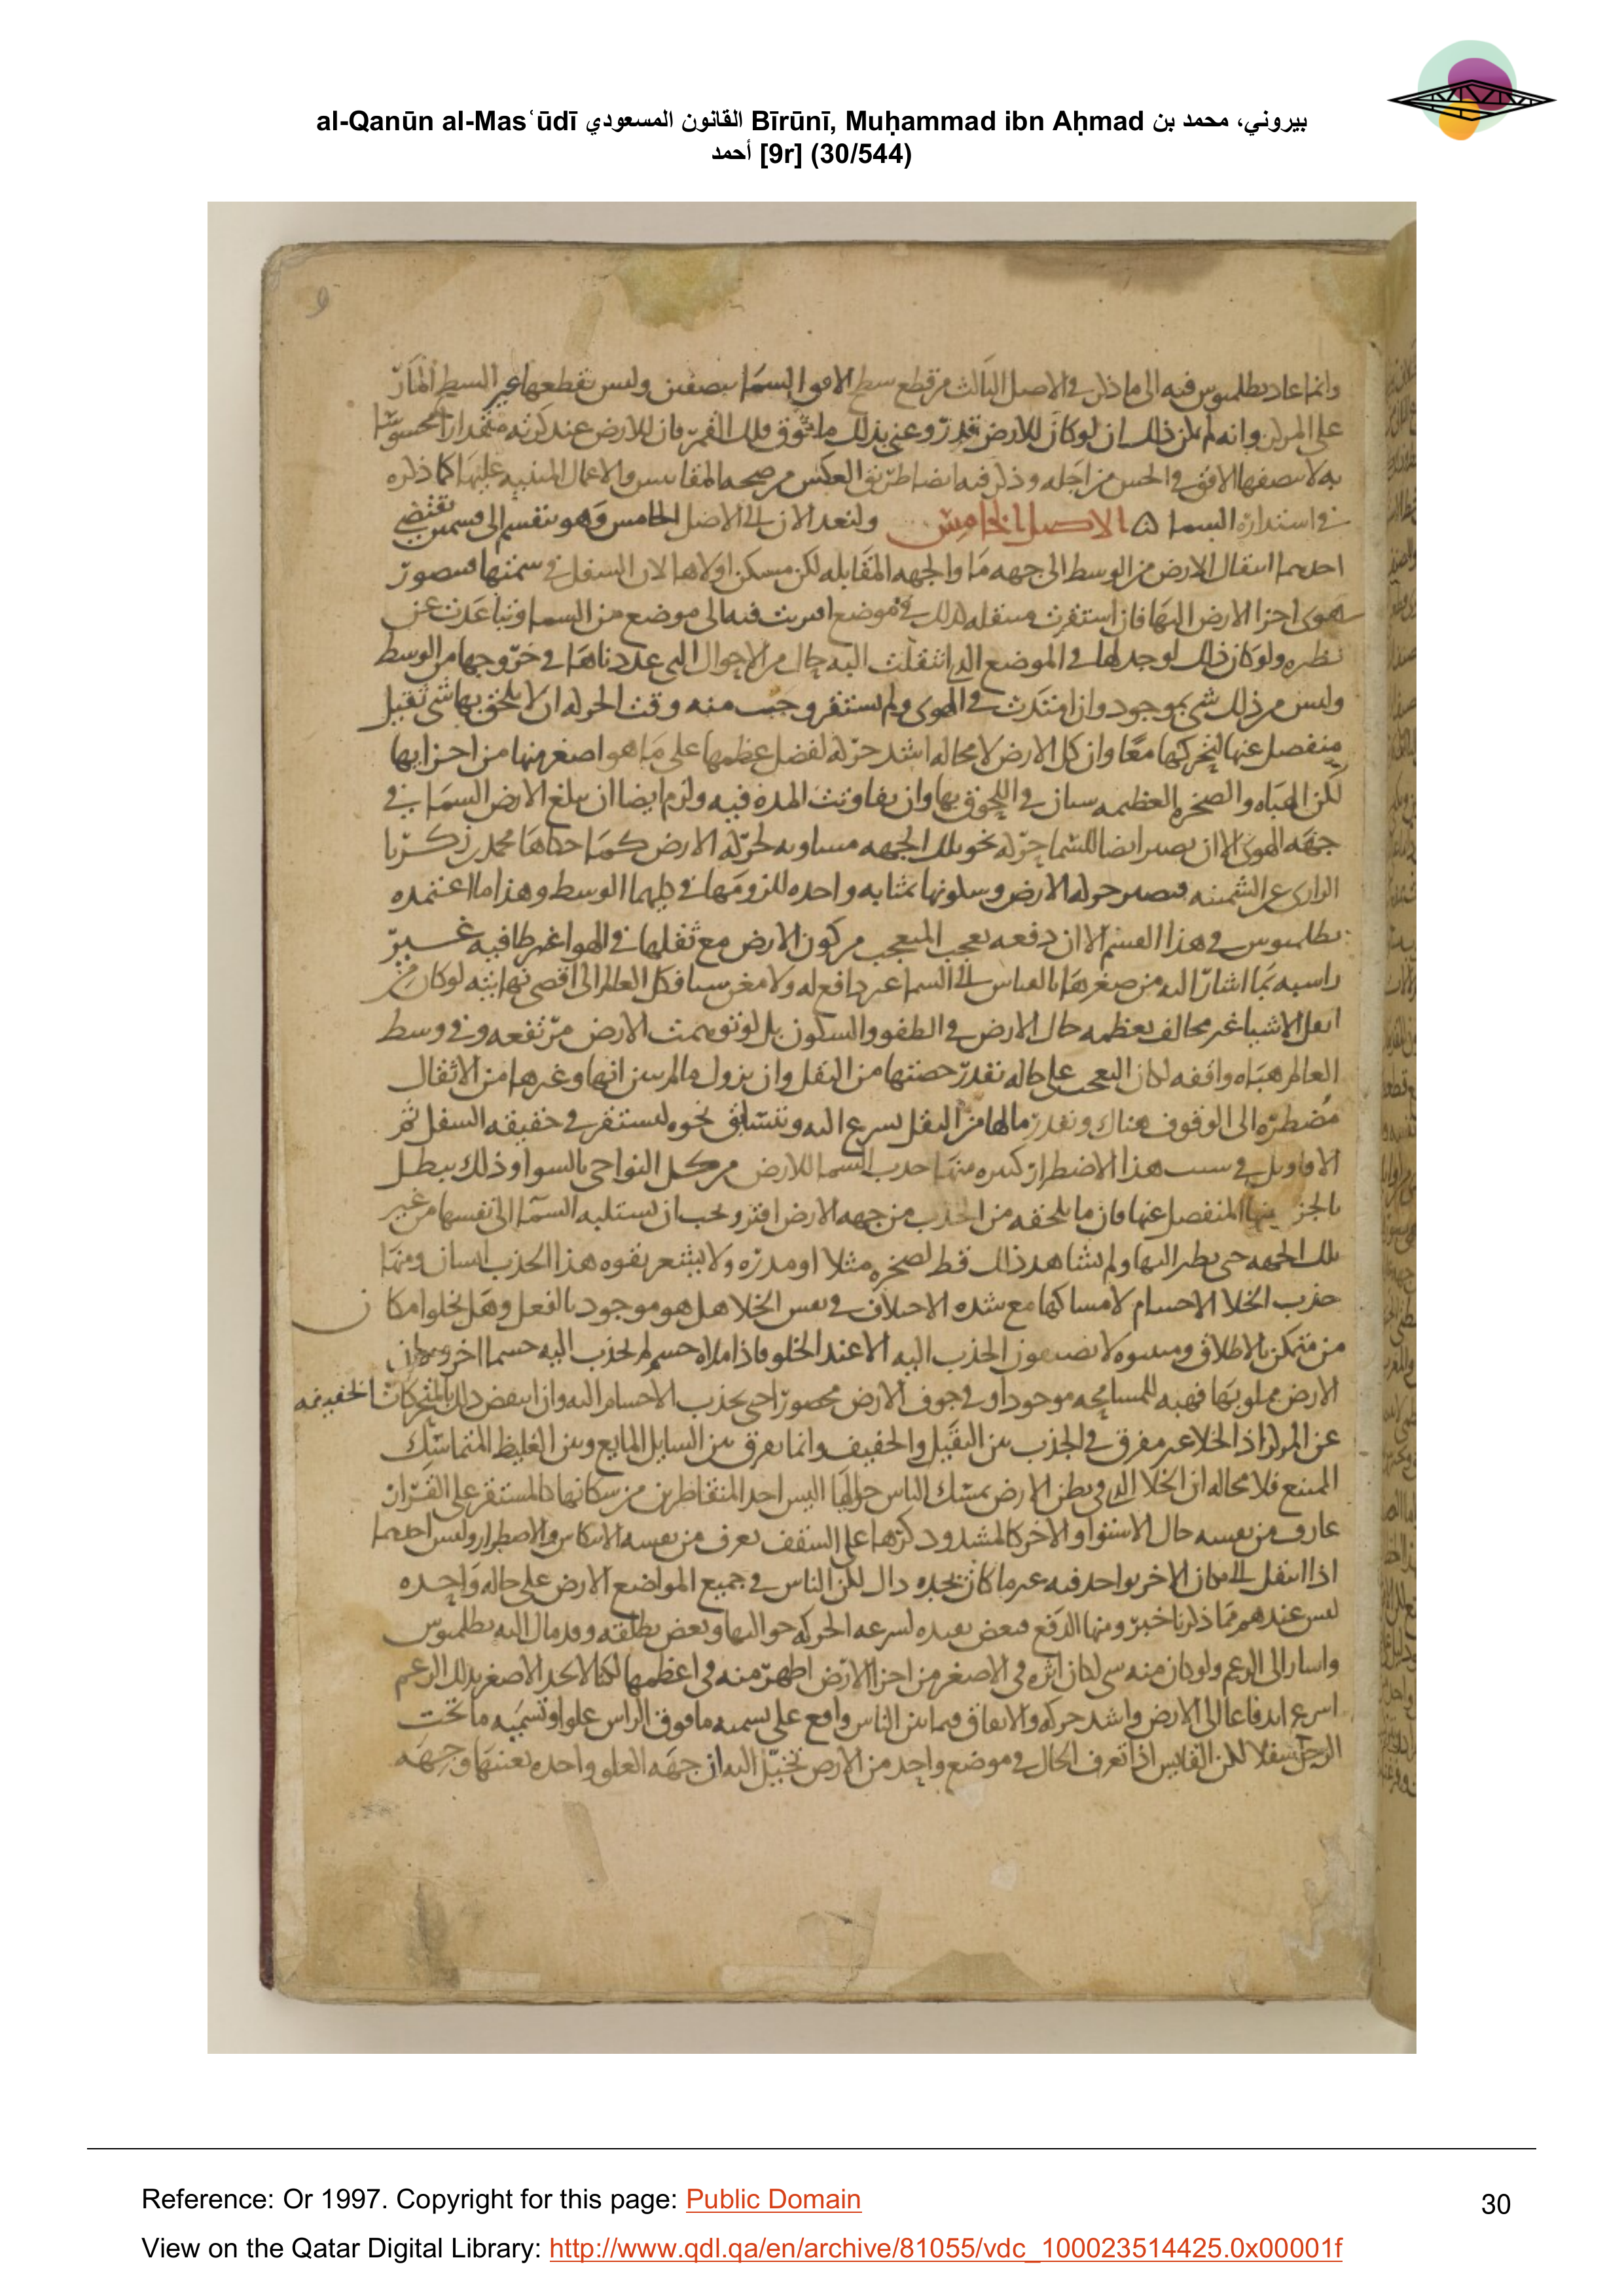 al-Qanūn al-Masʿūdī القانون المسعودي Bīrūnī, Muḥammad ibn Aḥmad بيروني، محمد بن
أحمد [9r] (30/544)
9
وانما عاد بطلميوس فيه الى ما ذكر في الاصل الثالث من قطع سطح الافق السما بنصفين وليس يقطعها غير البسيط المار
على المركز وانه لم يكن ذلك ان لو كان للارض قدر وعنى بذلك ما فوق فلك القمر فان للارض عند كرته مقدارا محسوسا
به لا ينصفها الافق في الحس من اجله وذكر فيه ايضا طريق العكس من صحة المقاييس والاعمال المبنيه عليها كما ذكره
في استدارة السما ه الاصل الخامس ولنعد الان الى الاصل الخامس وهو ينقسم الى قسمين يقتضي
احدهما انتقال الارض من الوسط الى جهه ما والجهه المقابله لكن مسكن اولاهما لان السفل في سمتها فيتصور
هوى اجزا الارض اليها فان استقرت منتقله كذلك في موضع اقتربت فيه الى موضع من السما وتباعدت عن
نظيره ولو كان ذلك لوجد لها في الموضع الذي انتقلت اليه حال من الاحوال التي عددناها في خروجها من الوسط
وليس من ذلك شي بموجود وان امتدت في الهوى ولم تستقر وجب منه وقت الحركه ان لا يلحق بها شي ثقيل
منفصل عنها لتحركهما معا وان كل الارض لا محاله اشد حركه لفضل عظمها على ما هو اصغر منها من اجزايها
لكن الهباه والصخره العظيمه سيان في اللحوق بها وان تفاوتت المده فيه ولزم ايضا ان يبلغ الارض السما في
جهه الهوى الا ان يصير ايضا للسما حركه نحو تلك الجهه مساويه لحركه الارض كما حكاها محمد بن زكريا
الرازي عن الشمنيه فيصير حركه الارض وسكونها بمثابه واحده للزومها في كليهما الوسط وهذا ما اعتمده
بطلميوس في هذا القسم الا ان دفعه تعجب المتعجب من كون الارض مع ثقلها في الهوا غير طافيه غير
راسبه بما اشار اليه من صغرها بالقياس الى السما غير دافع له ولا مغن شيا فكل العالم الى اقصى نهايته لو كان من
اثقل الاشيا غير مخالف بعظمه حال الارض في الطفو والسكون بل لو توهمت الارض مرتفعه وفي وسط
العالم هباه واقفه لكان التعجب على حاله بقدر حصتها من الثقل وان يزول ما لم يبن انها وغيرها من الاثقال
مضطره الى الوقوف هناك وبقدر ما لها من الثقل يسرع اليه وتتسابق نحوه ليستقر في حقيقه السفل ثم
الاقاويل في سبب هذا الاضطرار كثيره منها جذب السما للارض من كل النواحي بالسوا وذلك يبطل
بالجز منها المنفصل عنها فان ما يلحقه من الجذب من جهه الارض افتر ويجب ان تستلبه السما الى نفسها من غير
تلك الجهه حتى يطير اليها ولم يشاهد ذلك قط لصخره مثلا او مدره ولا يشعر بقوه هذا الجذب انسان ومنها
جذب الخلا الاجسام لامساكها مع شده الاختلاف في نفس الخلا هل هو موجود بالفعل وهل يخلوا مكان
من متمكن بالاطلاق ومثبتوه لا يضيفون الجذب اليه الا عند الخلو فاذا ملاه جسم لم يجذب اليه جسما اخر
الارض مملو بها فهبه للمسامحه موجودا وفي جوف الارض محصورا حتى يجذب الاجسام اليه وان انتقض ذلك بالمتحركات الخفيفه
عن المركز اذ الخلا غير مفرق في الجذب بين الثقيل والخفيف وانما يفرق بين السايل المايع وبين الغليظ المتماسك
الممتنع فلا محاله ان الخلا الذي في بطن الارض يمسك الناس حواليها اليس احد المتقاطرين من سكانها كالمستقر على القرار
عارف من نفسه حال الاستوا والاخر كالمشدود كرها على السقف يعرف من نفسه الانتكاس والاضطرار وليس احدهما
اذا انتقل الى مكان الاخر بواجد فيه غير ما كان يجده لكن الناس في جميع المواضع الارض على حاله واحده
ليس عندهم مما ذكرنا خبر ومنها الدفع فبعض يقيده لسرعه الحركه حواليها وبعض يطلقه وقد مال اليه بطلميوس
واشار الى الزعم ولو كان منه شي لكان اثره في الاصغر من اجزا الارض اظهر منه في اعظمها لكنا لا نجد الاصغر بذلك الزعم
اسرع اندفاعا الى الارض واشد حركه والاتفاق فيما بين الناس واقع على تسميه ما فوق الراس علوا وتسميه ما تحت
الرجل سفلا لكن القايس اذا تعرف الحال في موضع واحد من الارض تخيل اليه ان جهه العلو واحده بعينها وجهه
Reference: Or 1997. Copyright for this page: Public Domain
30
View on the Qatar Digital Library: http://www.qdl.qa/en/archive/81055/vdc_100023514425.0x00001f